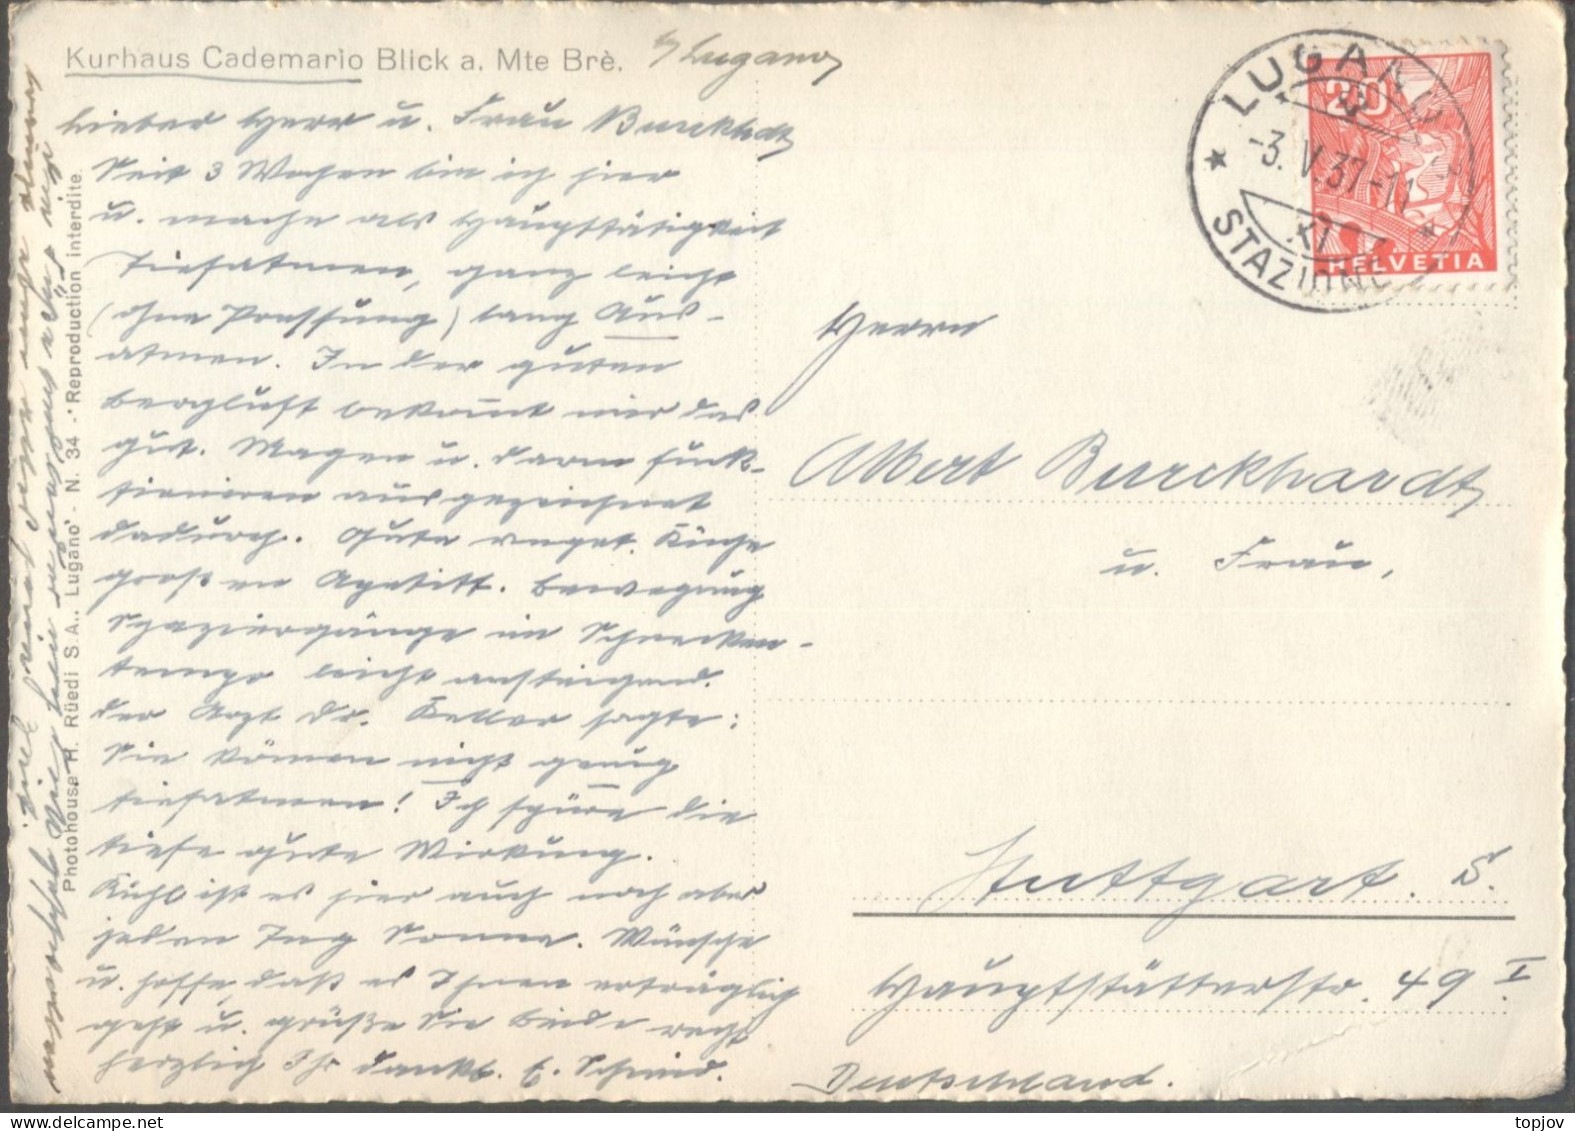 Kurhaus Cademario Blick a. Mte Brè.
b/ Lugano
Lieber Herr u. Frau Burckhdt
Seit 3 Wochen bin ich hier
u. mache als Haupttätigkeit
Tiefatmen, ganz leicht
(ohne Pressung) lang Aus-
atmen. In der guten
Bergluft bekommt mir das
gut. Magen u. Darm funk-
tionieren ausgezeichnet
dadurch. Gute veget. Küche
großen Apetitt. Bewegung
Spaziergänge im Schnecken-
tempo leicht ansteigend.
Der Arzt Dr. Keller sagte:
Sie können nicht genug
tiefatmen! Ich spüre die
tiefe gute Wirkung.
Kühl ist es hier auch noch aber
jeden Tag Sonne. Wünsche
u. hoffe, daß es Ihnen erträglich
geht u. grüße Sie beide recht
herzlich Ihr dankb. E. Schmid.
Photohouse H. Rüedi S.A., Lugano - N. 34 - Reproduction interdite.
LUGANO
STAZIONE
-3.V.37-11
XI
20
HELVETIA
Herrn
Albert Burckhardt
u. Frau,
Stuttgart. S.
Hauptstätterstr. 49 I
Deutschland.
topjov